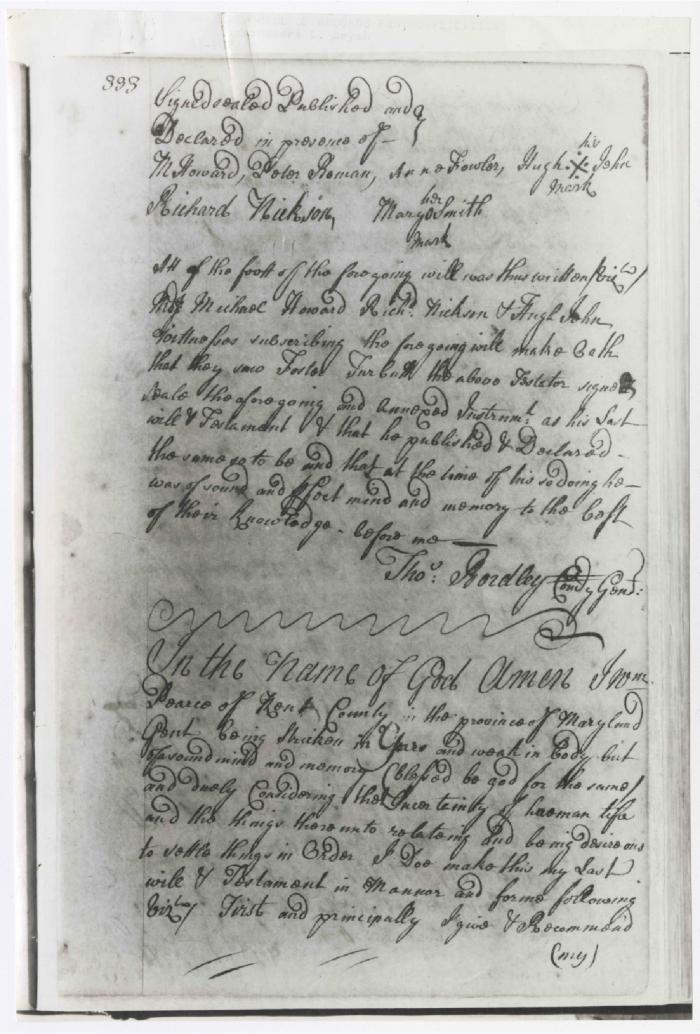 333
Signed sealed Published and
Declared in presence of
M Howard, Peter Roman, Anne Fowler, Hugh his X mark John
Richard Nickson, Mary her O mark Smith
Att of the foott of the foregoing will was thus written (vizt)
Michael Howard Richd. Nickson & Hugh John
Wittnesses subscribing the foregoing will make Oath
that they saw Foster Turbutt the above Testator signe &
seale the aforegoing and annexed Instrumt. as his Last
will & Testament & that he published & Declared
the same so to be and that at the time of his so doing he
was of sound and mind and memory to the best
of their Knowledge - before me
Tho: Bordley Gent:
In the Name of God Amen I Wm.
Pearce of Kent County in the province of Maryland
Gent being stricken in Years and weak in body but
of sound mind and memory (blessed be god for the same)
and duely Considering the Uncertainty of human life
and the things thereunto relateing and being desireous
to settle things in Order I Doe make this my Last
will & Testament in Mannor and forme following
Vizt. First and principally I give & Recommend
(my)